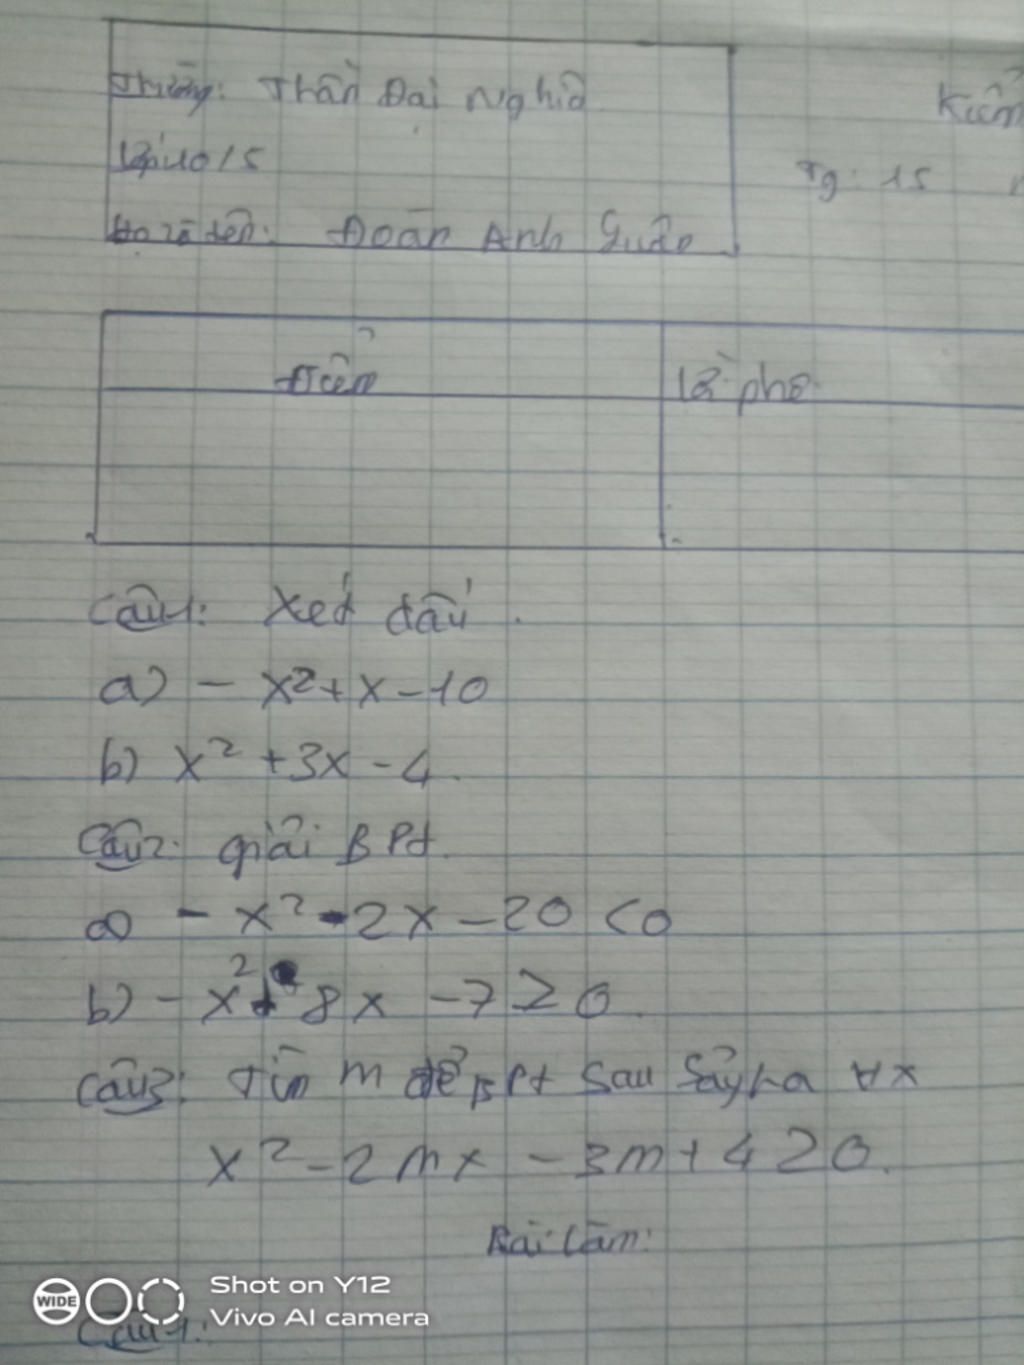 Trường: Trần Đại Nghĩa
Lớp: 10/5
Họ và tên: Đoàn Anh
Tg: 15
Điểm
Lời phê
Câu 1: Xét dấu.
a) - x² + x - 10
b) x² + 3x - 4.
Câu 2: giải BPt.
a) - x² - 2x - 20 < 0
b) - x² + 8x - 7 ≥ 0.
Câu 3: Tìm m để BPt sau xảy ra ∀x
x² - 2mx - 3m + 4 ≥ 0.
Bài làm:
Câu 1:
WIDE
Shot on Y12
Vivo AI camera